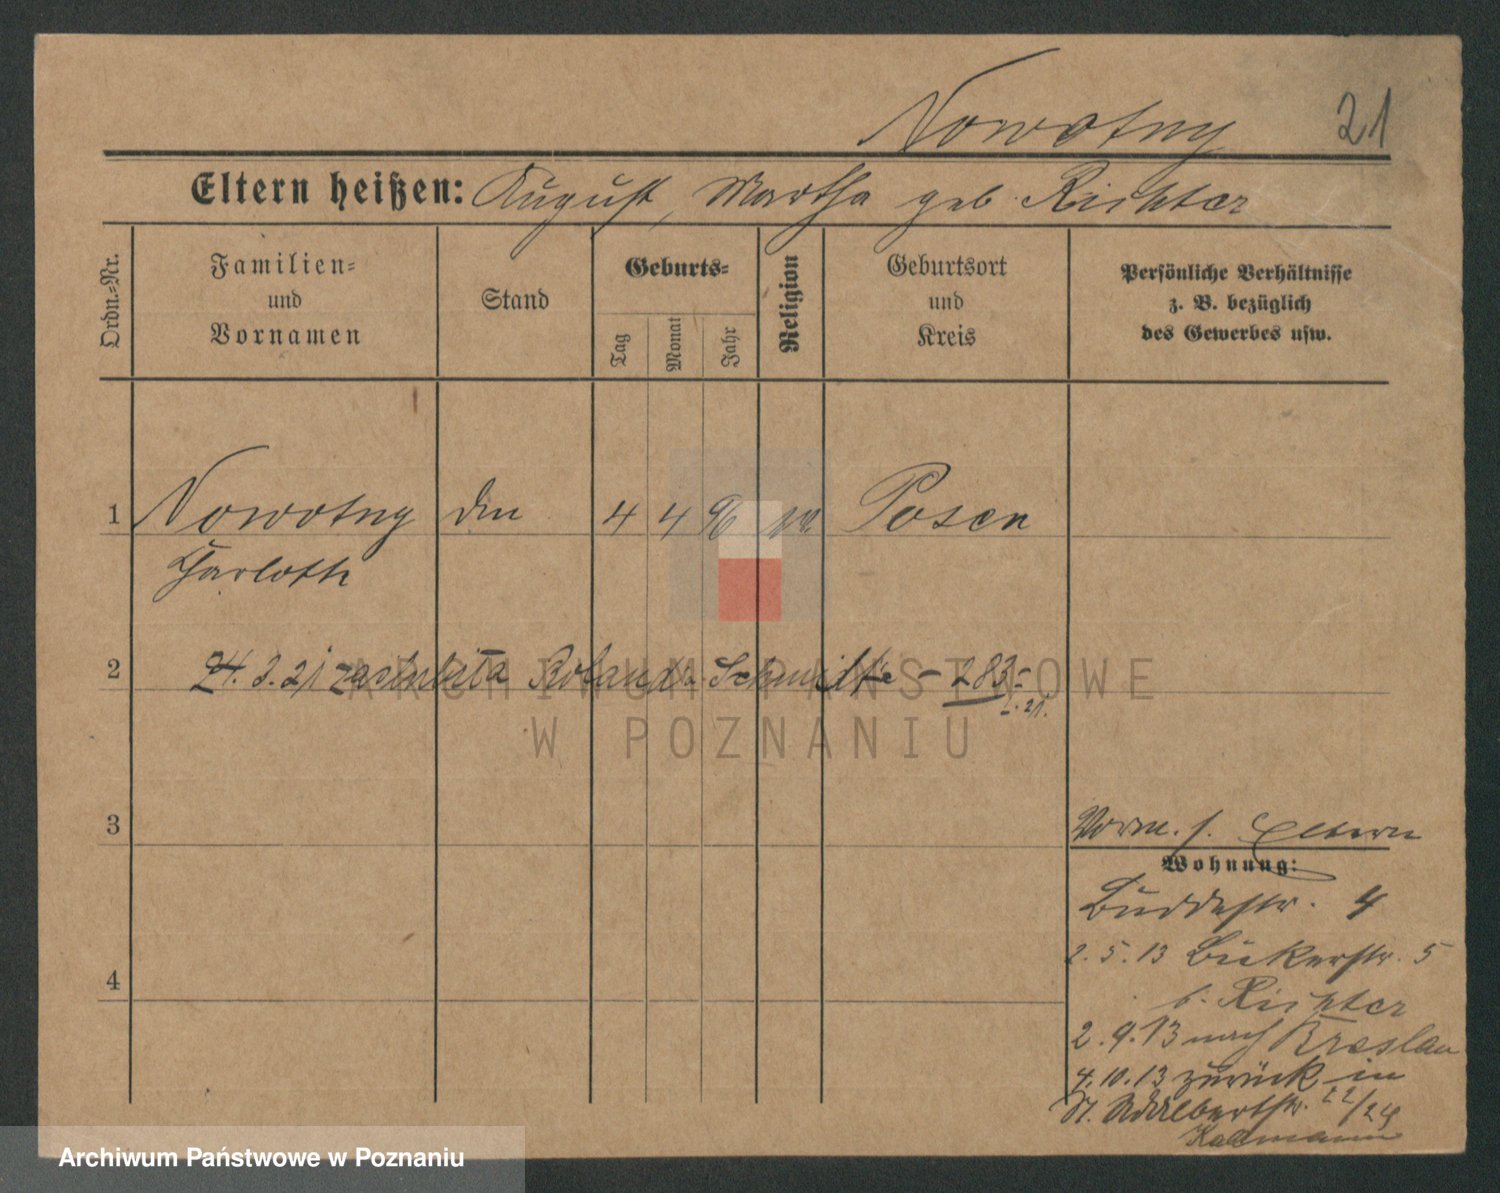 Nowotny 21
Eltern heißen: August, Martha geb. Richter
Ordn.-Nr.
Familien-
und
Vornamen
Stand
Geburts-
Tag
Monat
Jahr
Religion
Geburtsort
und
Kreis
Persönliche Verhältnisse
z. B. bezüglich
des Gewerbes usw.
1 Nowotny 4 4 96 Posen
2 24. 3. 21 Schmidt - 283 -
21.
3
4
Vorm. s. Eltern
Wohnung:
Buddestr. 4
2. 5. 13 Bäckerstr. 5
b. Richter
2. 9. 13 nach Breslau
4. 10. 13 zurück in
St. Adalbertstr. 22/24
ARCHIWUM PAŃSTWOWE
W POZNANIU
Archiwum Państwowe w Poznaniu